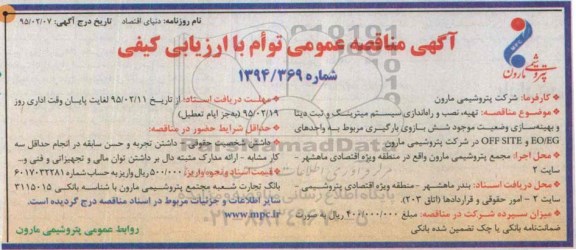 نام روزنامه: دنیای اقتصاد تاریخ درج آگهی: ۹۵/۰۲/۰۷
آگهی مناقصه عمومی توأم با ارزیابی کیفی
شماره ۱۳۹۴/۳۶۹
پتروشیمی مارون
کارفرما: شرکت پتروشیمی مارون
موضوع مناقصه: تهیه، نصب و راه‌اندازی سیستم میترینگ و ثبت دیتا
و بهینه‌سازی وضعیت موجود شش بازوی بارگیری مربوط به واحدهای
EO/EG و OFF SITE در شرکت پتروشیمی مارون
محل اجرا: مجتمع پتروشیمی مارون واقع در منطقه ویژه اقتصادی ماهشهر -
سایت ۲
محل دریافت اسناد: بندر ماهشهر - منطقه ویژه اقتصادی پتروشیمی -
سایت ۲ - امور حقوقی و قراردادها (اتاق ۲۰۳).
میزان سپرده شرکت در مناقصه: مبلغ ۴۰۰/۰۰۰/۰۰۰ ریال به صورت
ضمانت‌نامه بانکی یا چک تضمین شده بانکی
مهلت دریافت اسناد: از تاریخ ۹۵/۰۲/۱۱ لغایت پایان وقت اداری روز
۹۵/۰۲/۱۹ (به‌جز ایام تعطیل)
حداقل شرایط حضور در مناقصه:
داشتن شخصیت حقوقی - داشتن تجربه و حسن سابقه در انجام حداقل سه
کار مشابه - ارائه مدارک مثبته دال بر داشتن توان مالی و تجهیزاتی و فنی و...
قیمت اسناد و نحوه واریز: ۵۰۰/۰۰۰ ریال واریز به حساب شماره ۶۰۱۷۰۳۲۲۸۱
بانک تجارت شعبه مجتمع پتروشیمی مارون با شناسه بانکی ۳۱۱۵۰۱۵
سایر اطلاعات و جزئیات مربوط در اسناد مناقصه درج گردیده است.
www.mpc.ir
روابط عمومی پتروشیمی مارون
ParsNamadData